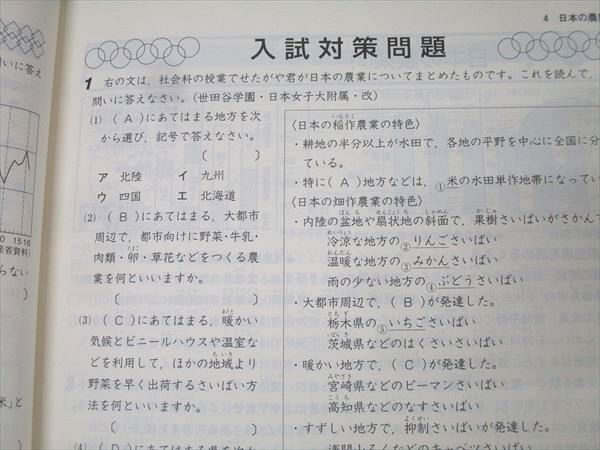 4 日本の農
入試対策問題
1 右の文は，社会科の授業でせたがや君が日本の農業についてまとめたものです。これを読んで，
問いに答えなさい。(世田谷学園・日本女子大附属・改)
(1) ( A )にあてはまる地方を次
から選び，記号で答えなさい。
〔 〕
ア 北陸 イ 九州
ウ 四国 エ 北海道
(2) ( B )にあてはまる，大都市
周辺で，都市向けに野菜・牛乳・
肉類・卵・草花などをつくる農
業を何といいますか。
〔 〕
(3) ( C )にあてはまる，暖かい
気候とビニールハウスや温室な
どを利用して，ほかの地域より
野菜を早く出荷するさいばい方
法を何といいますか。
〔 〕
(4) ( D )にあてはまる県を次か
〈日本の稲作農業の特色〉
・耕地の半分以上が水田で，各地の平野を中心に全国に分
ている。
・特に( A )地方などは，①米の水田単作地帯になってい
〈日本の畑作農業の特色〉
・内陸の盆地や扇状地の斜面で，果樹さいばいがさかんで
冷涼な地方の②りんごさいばい
温暖な地方の③みかんさいばい
雨の少ない地方の④ぶどうさいばい
・大都市周辺で，( B )が発達した。
栃木県の⑤いちごさいばい
茨城県などのはくさいさいばい
・暖かい地方で，( C )が発達した。
宮崎県などのピーマンさいばい
高知県などのなすさいばい
・すずしい地方で，抑制さいばいが発達した。
浅間山ろくなどのキャベツさいばい
いに答え
0 1516
産省資料)
らない
〕
米」と